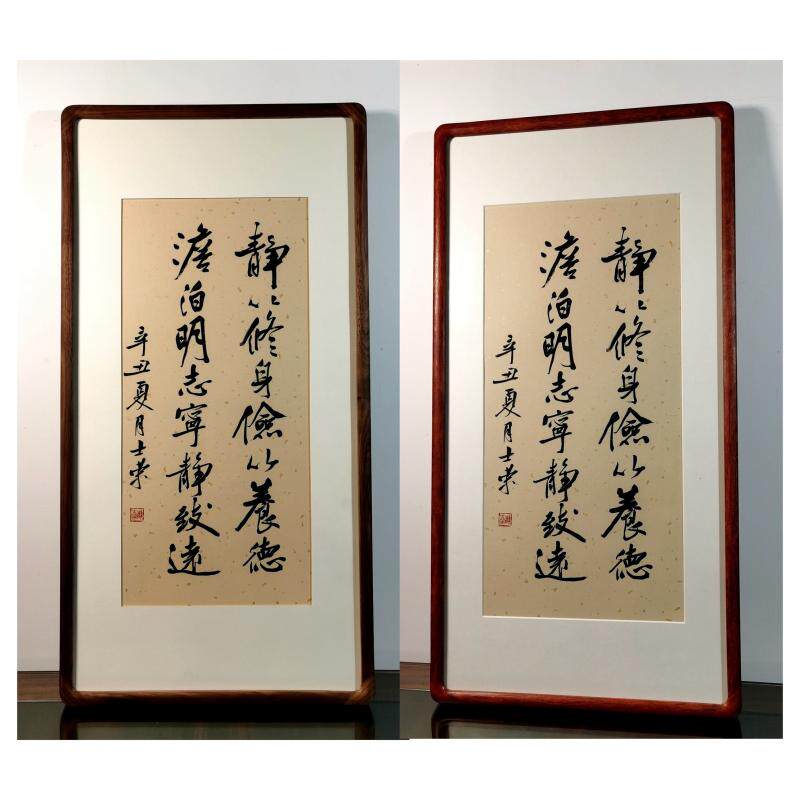 静以修身儉以養德
澹泊明志寧静致遠
辛丑夏月士荣
静以修身儉以養德
澹泊明志寧静致遠
辛丑夏月士荣